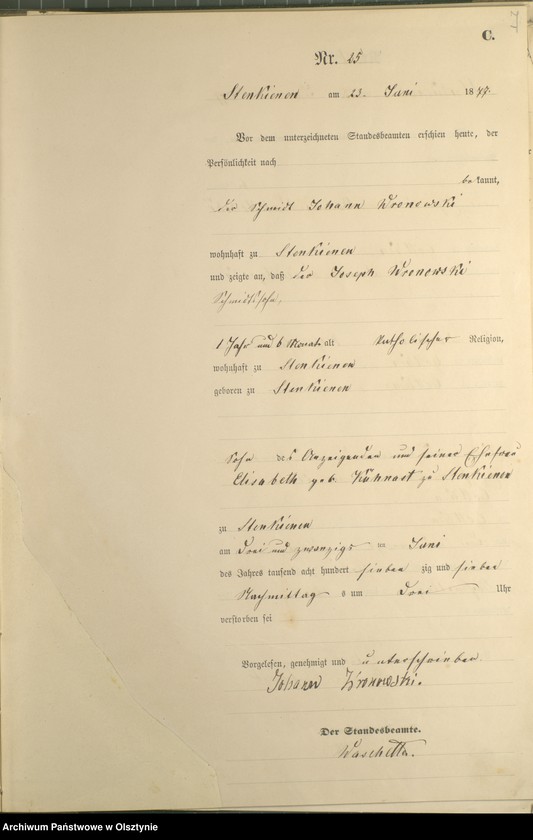 C.
Nr. 25
Stenkienen am 23. Juni 1877.
Vor dem unterzeichneten Standesbeamten erschien heute, der
Persönlichkeit nach
bekannt,
der Schmidt Johann Wronowski
wohnhaft zu Stenkienen
und zeigte an, daß der Joseph Wronowski
Schmidtssohn,
1 Jahr und 6 Monate alt Katholischer Religion,
wohnhaft zu Stenkienen
geboren zu Stenkienen
Sohn des Anzeigenden und seiner Ehefrau
Elisabeth geb. Kuhnast zu Stenkienen
zu Stenkienen
am Drei und zwanzigs ten Juni
des Jahres tausend acht hundert sieben zig und sieben
Nachmittag s um Drei Uhr
verstorben sei
Vorgelesen, genehmigt und unterschrieben
Johann Wronowski.
Der Standesbeamte.
Waschetta.
Archiwum Państwowe w Olsztynie